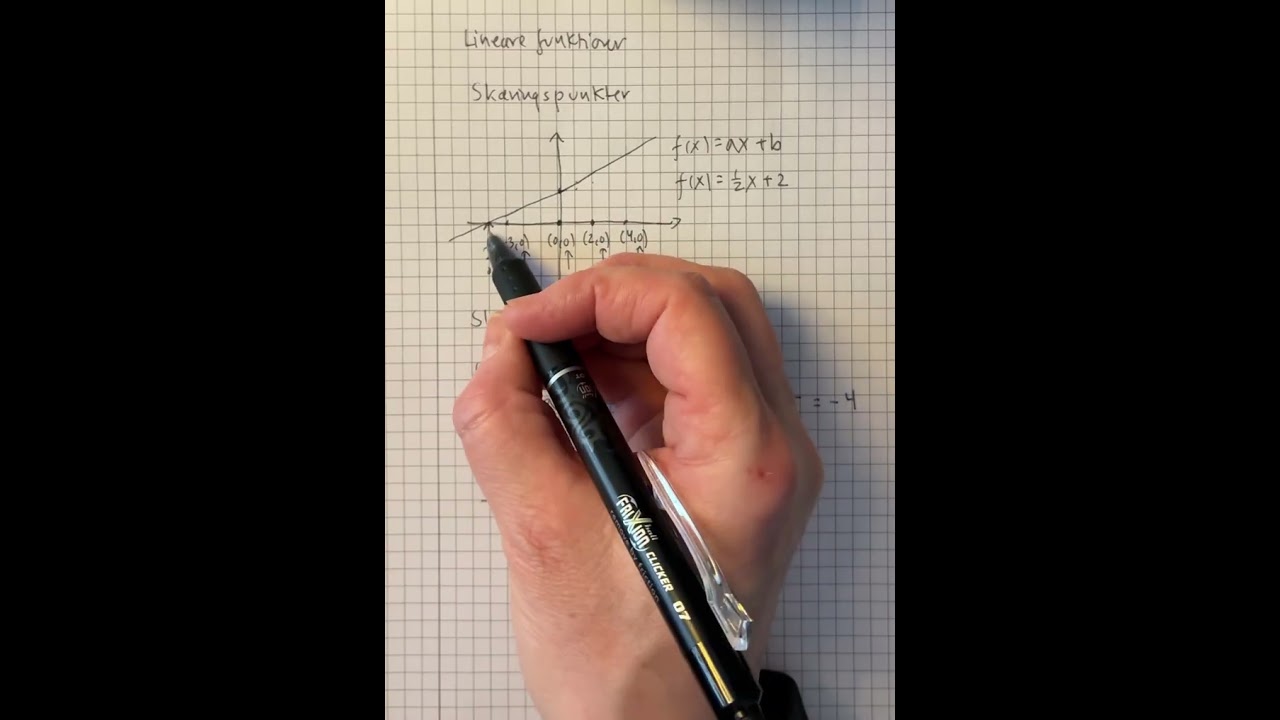 Lineære funktioner
Skæringspunkter
f(x)=ax+b
f(x)=½x+2
3,0) (0,0) (2,0) (4,0)
= -4
FRIXION ball CLICKER 07